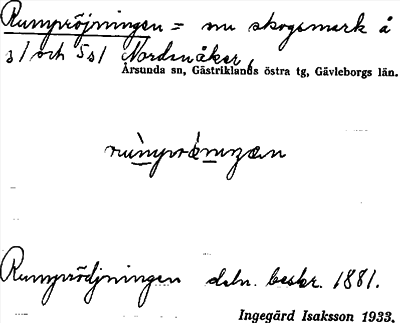 Rumpröjningen = nu skogsmark å
3/1 och 5s/ Nordanåker,
Årsunda sn, Gästriklands östra tg, Gävleborgs län.
Rumprödjningen dsbn. beskr. 1881.
Ingegärd Isaksson 1933.